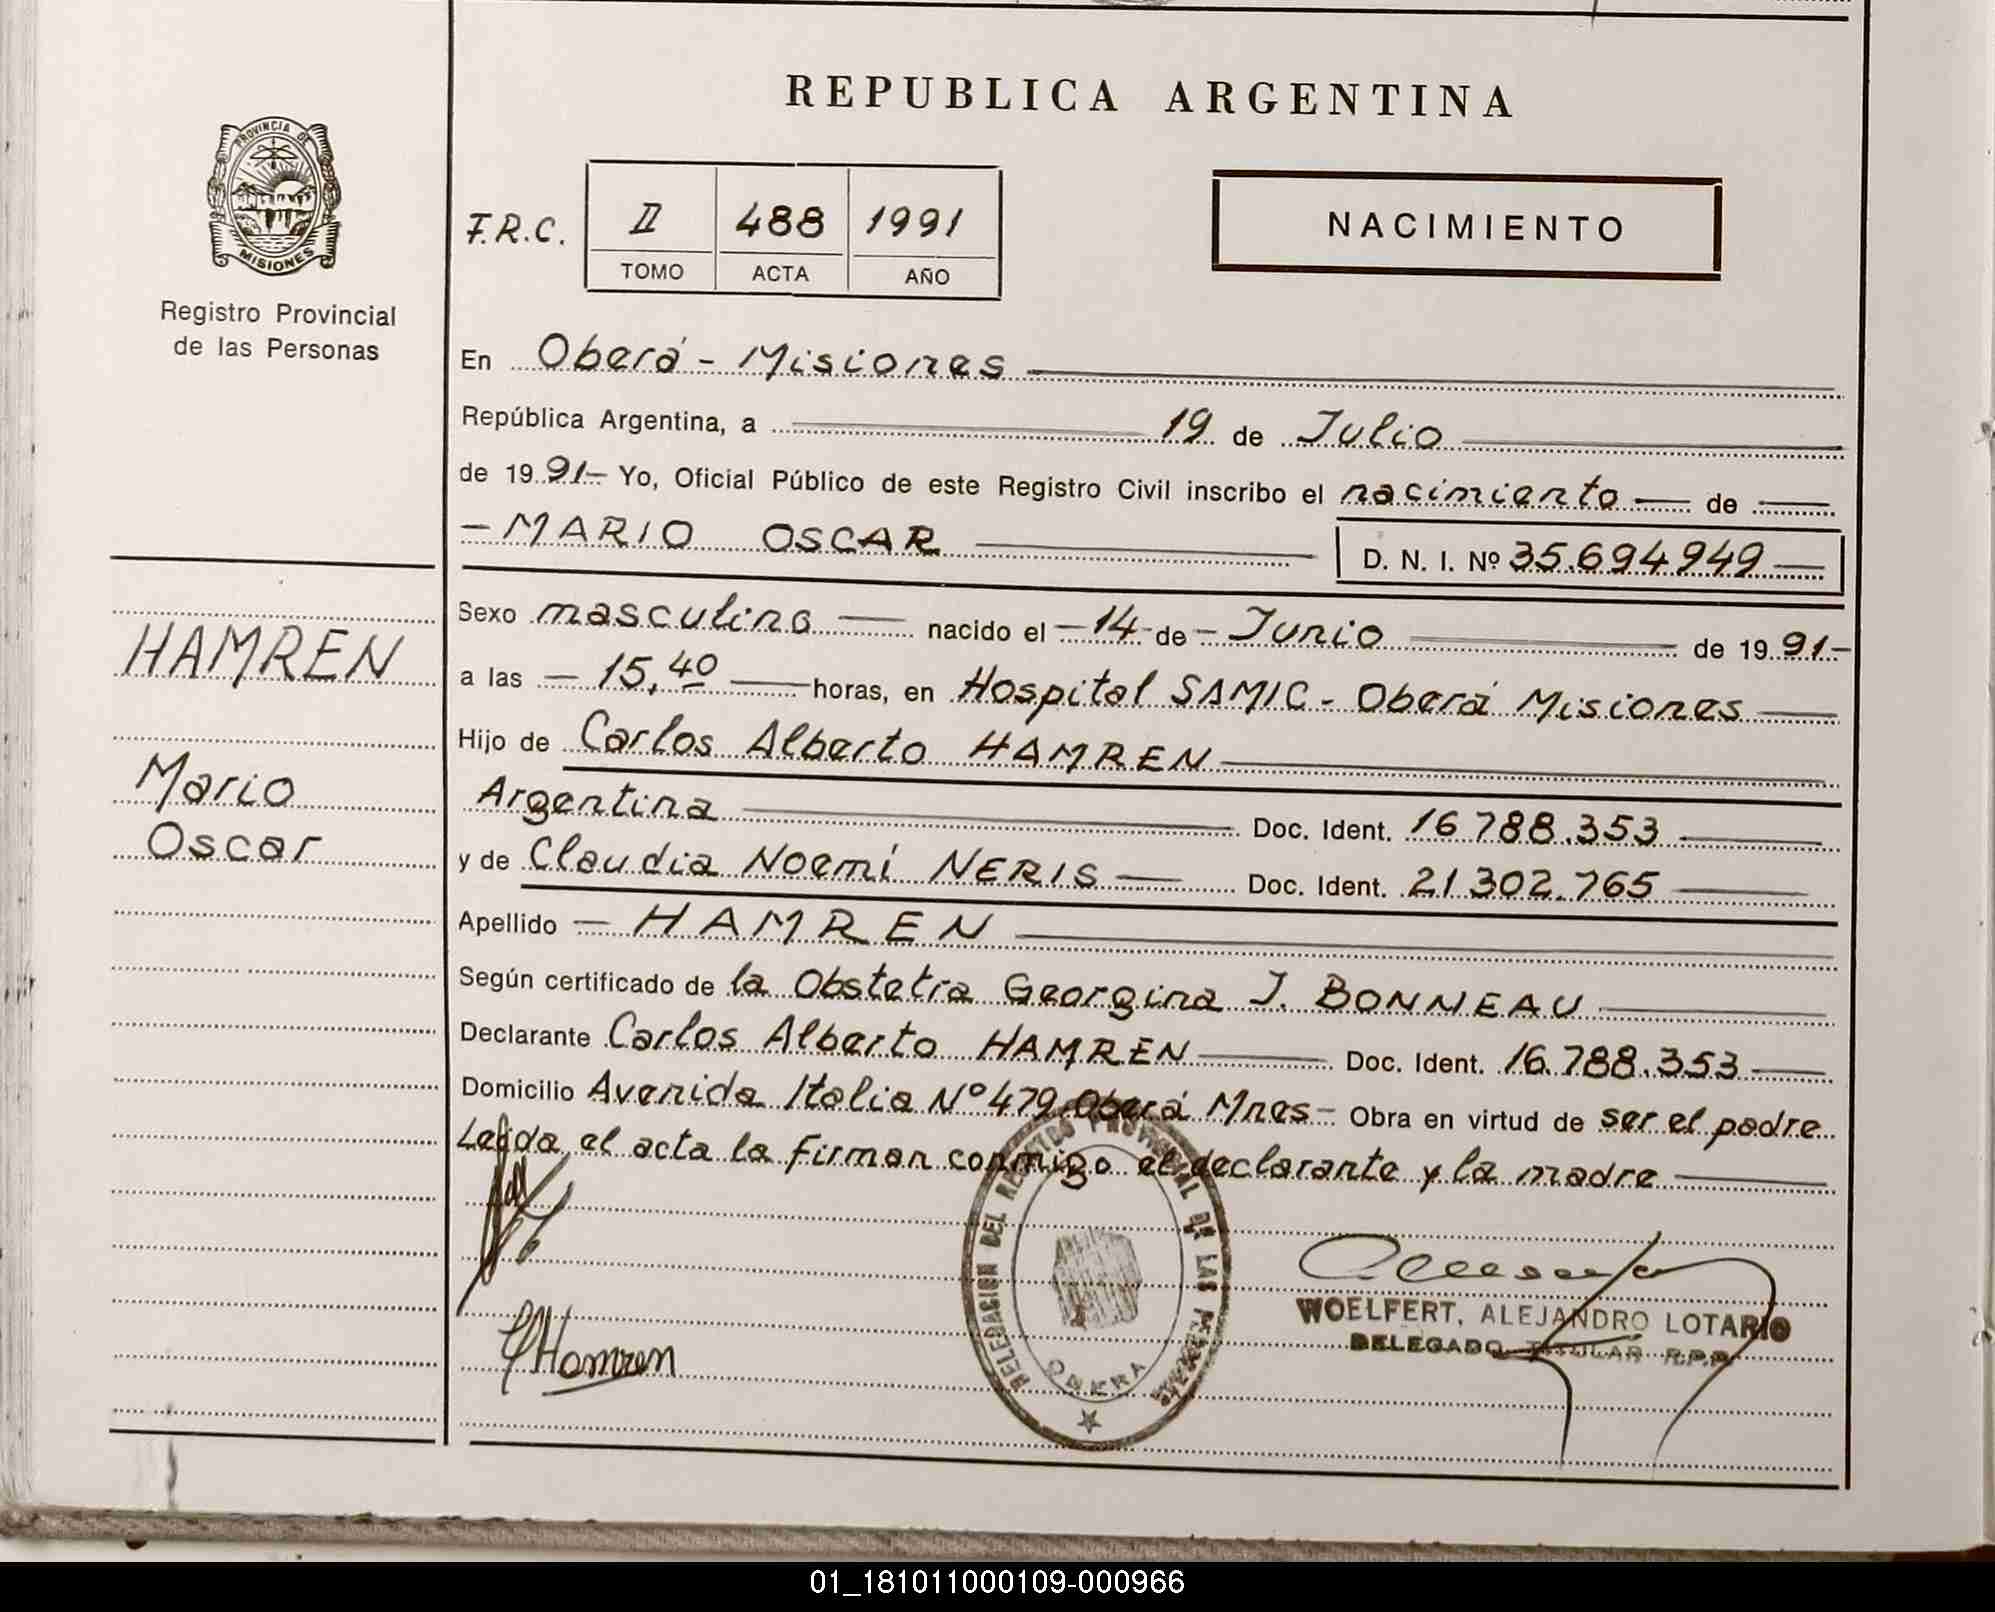 REPUBLICA ARGENTINA
PROVINCIA DE
MISIONES
Registro Provincial
de las Personas
F.R.C. II 488 1991
TOMO ACTA AÑO
NACIMIENTO
En Oberá - Misiones
República Argentina, a 19 de Julio
de 1991- Yo, Oficial Público de este Registro Civil inscribo el nacimiento de
- MARIO OSCAR D. N. I. Nº 35.694.949
HAMREN
Mario
Oscar
Sexo masculino nacido el - 14 - de - Junio de 1991-
a las - 15,40 horas, en Hospital SAMIC - Oberá Misiones
Hijo de Carlos Alberto HAMREN
Argentina Doc. Ident. 16.788.353
y de Claudia Noemí NERIS Doc. Ident. 21.302.765
Apellido - HAMREN
Según certificado de la Obstetra Georgina J. BONNEAU
Declarante Carlos Alberto HAMREN Doc. Ident. 16.788.353
Domicilio Avenida Italia Nº 479, Oberá Mnes- Obra en virtud de ser el padre
Leida el acta la firman conmigo el declarante y la madre
DELEGACION DEL REGISTRO PROVINCIAL DE LAS PERSONAS
OBERA
Hamren
WOELFERT, ALEJANDRO LOTARIO
DELEGADO TITULAR R.P.P.
01_181011000109-000966